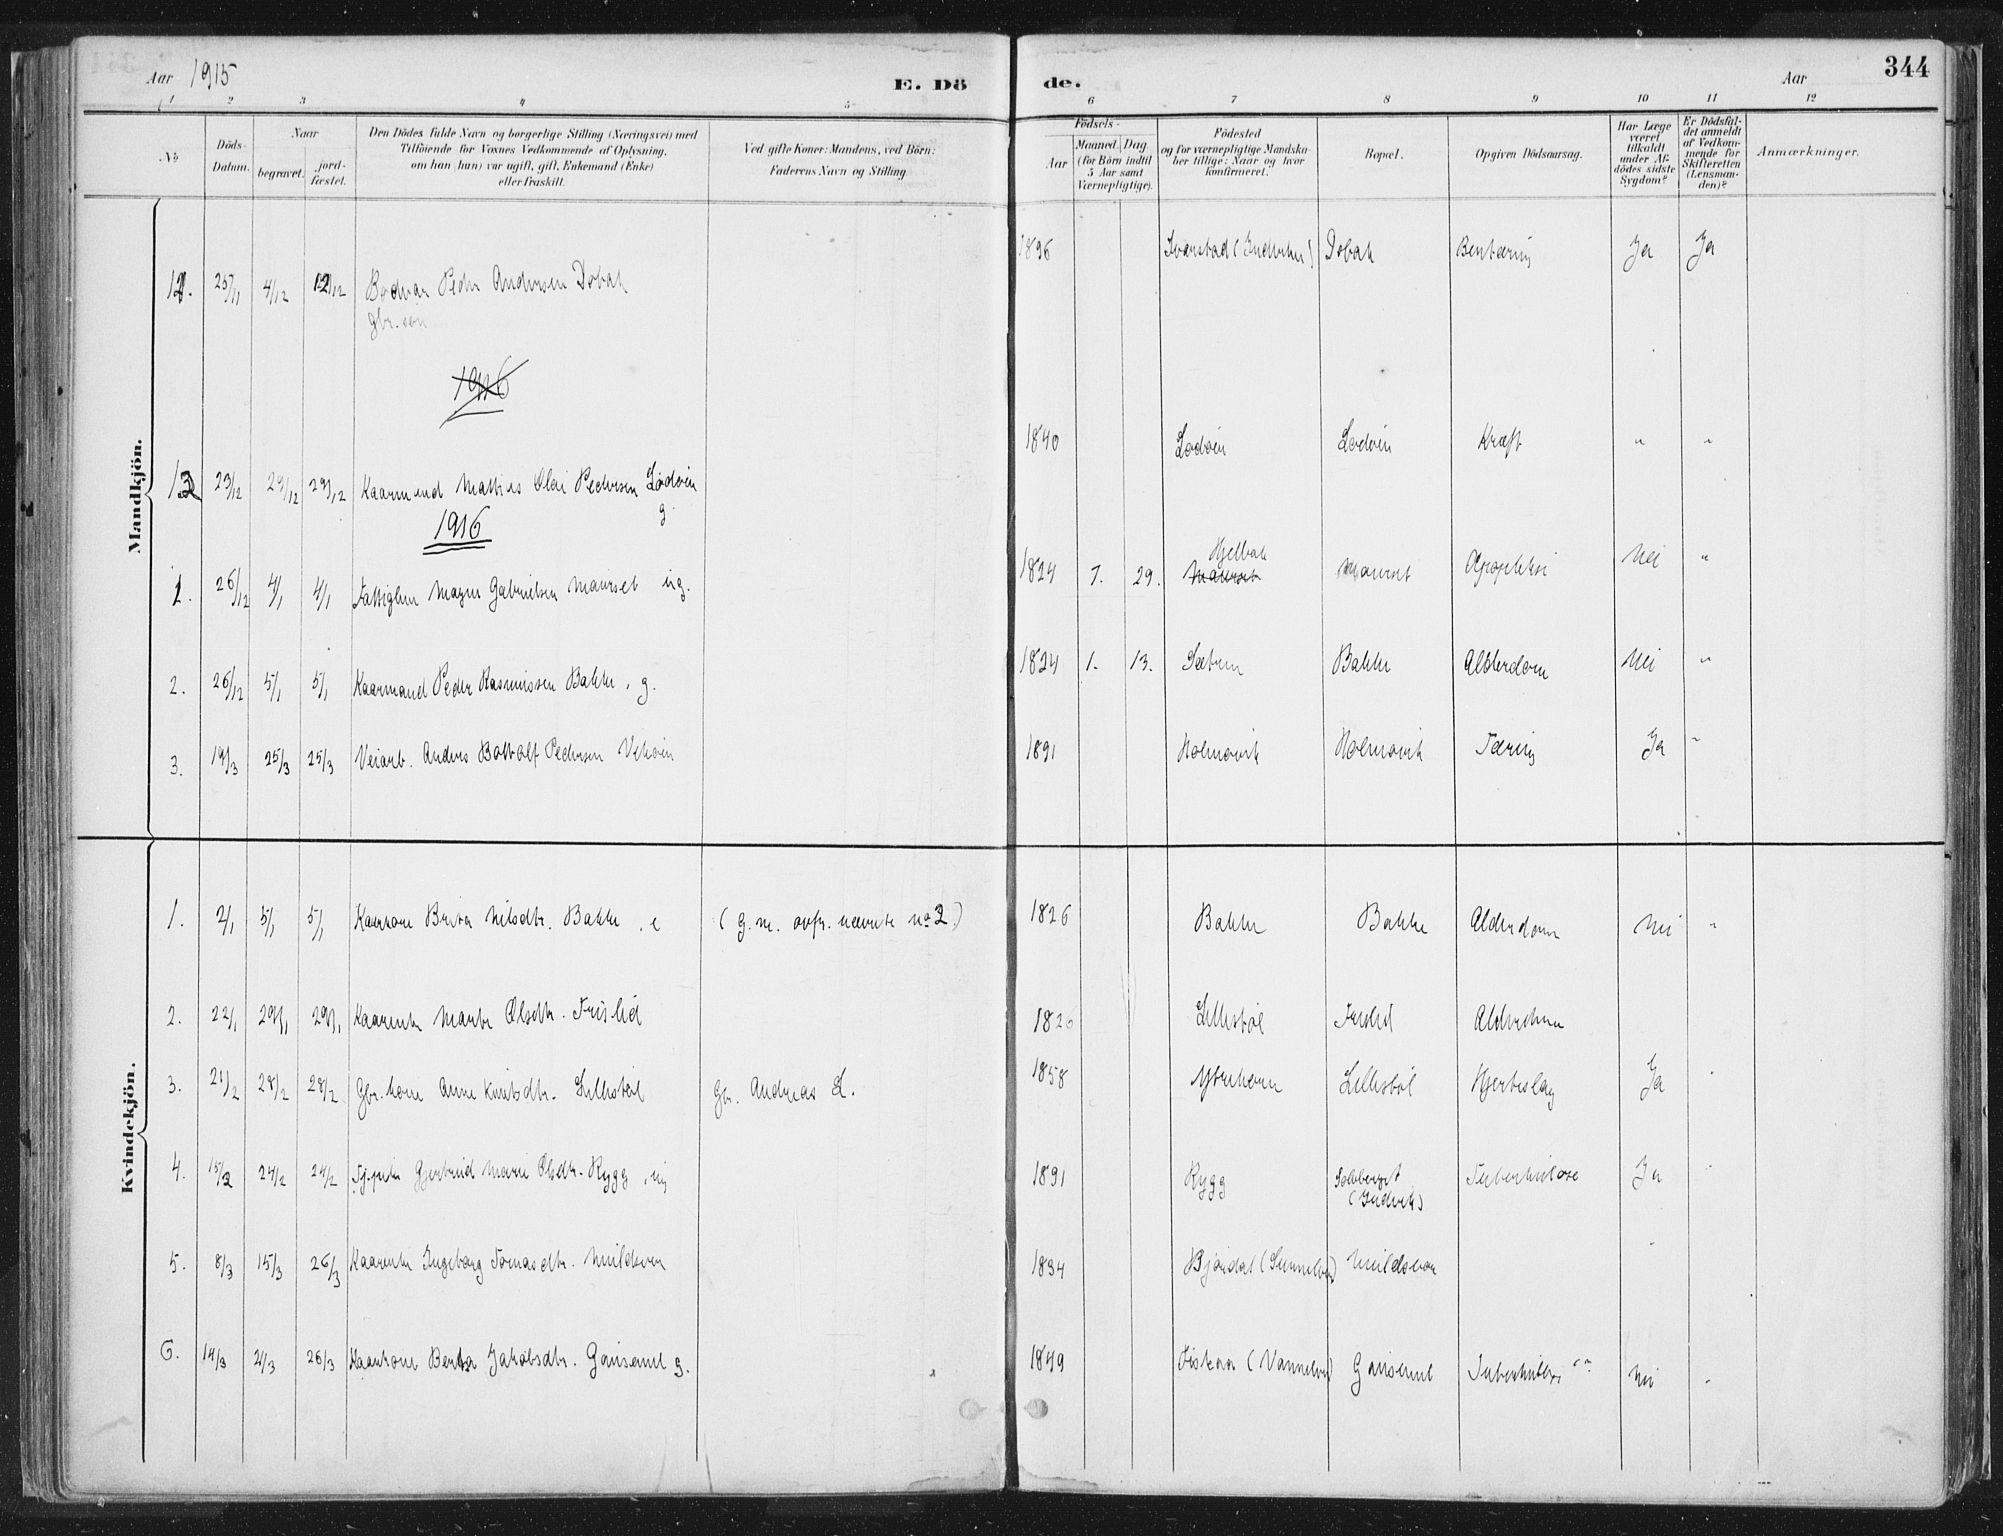 Aar 1915
E. Dö de.
Aar
344
1 2 3 4 5 6 7 8 9 10 11 12
No
Döds-Datum.
Naar
begravet.
jord-fæstet.
Den Dödes fulde Navn og borgerlige Stilling (Næringsvei) med
Tilföiende for Voxnes Vedkommende af Oplysning,
om han (hun) var ugift, gift, Enkemand (Enke)
eller fraskilt.
Ved gifte Koner: Mandens, ved Börn:
Faderens Navn og Stilling.
Födsels-
Aar
Maaned. Dag
(for Börn indtil
5 Aar samt
Værnepligtige).
Födested
og for værnepligtige Mandska-
ber tillige: Naar og hvor
konfirmeret.
Bopæl.
Opgiven Dödsaarsag.
Har Læge
været
tilkaldt
under Af-
dödes sidste
Sygdom?
Er Dödsfal-
det anmeldt
af Vedkom-
mende for
Skifteretten
(Lensman-
den)?
Anmærkninger.
Mandkjön.
25/11 4/12 12/12 Peder Andersen Dobak 1896 Dobak Bentæring Ja Ja
gbr. sön
1916
23/12 29/12 29/12 Kaarmand Mathias Olai Pedersen Lödöen 1840 Lödöen Lödöen Kræft " "
g.
1916
1. 26/12 4/1 4/1 Magne Gabrielsen Maurset ug. 1824 7. 29. Hjelbak Maurset Maurset Apopleksi Nei "
2. 26/12 5/1 5/1 Kaarmand Peder Rasmussen Bakke, g. 1824 1. 13. Sætren Bakke Alderdom Nei "
3. 19/3 25/3 25/3 Veiarb. Anders Bottolf Pedersen 1891 Holmövik Holmövik Tæring Ja "
Kvindekjön.
1. 2/1 5/1 5/1 Kaarkone Brita Nilsdtr. Bakke, e (G. m. ovfr. nævnte no 2.) 1826 Bakke Bakke Alderdom Nei "
2. 22/1 29/1 29/1 Kaarenke Marte Olsdtr. Frislid 1826 Lillestöl Frislid Alderdom
3. 21/2 28/2 28/2 Gbr. kone Anne Knutsdtr. Lillestöl Gbr. Andreas L. 1858 Ytrehorn Lillestöl Hjerteslag Ja "
4. 15/2 24/2 24/2 Tj.pike Gjertrud Marie Olsdtr. Rygg, ug 1891 Rygg (Indvik) Tuberkulose Ja "
5. 8/3 15/3 26/3 Kaarenke Ingeborg Tomasdtr. 1834 Björdal (Sunnelven)
6. 14/3 2/3 26/3 Kaarkone Berta Jakobsdtr. g. 1849 Nei "